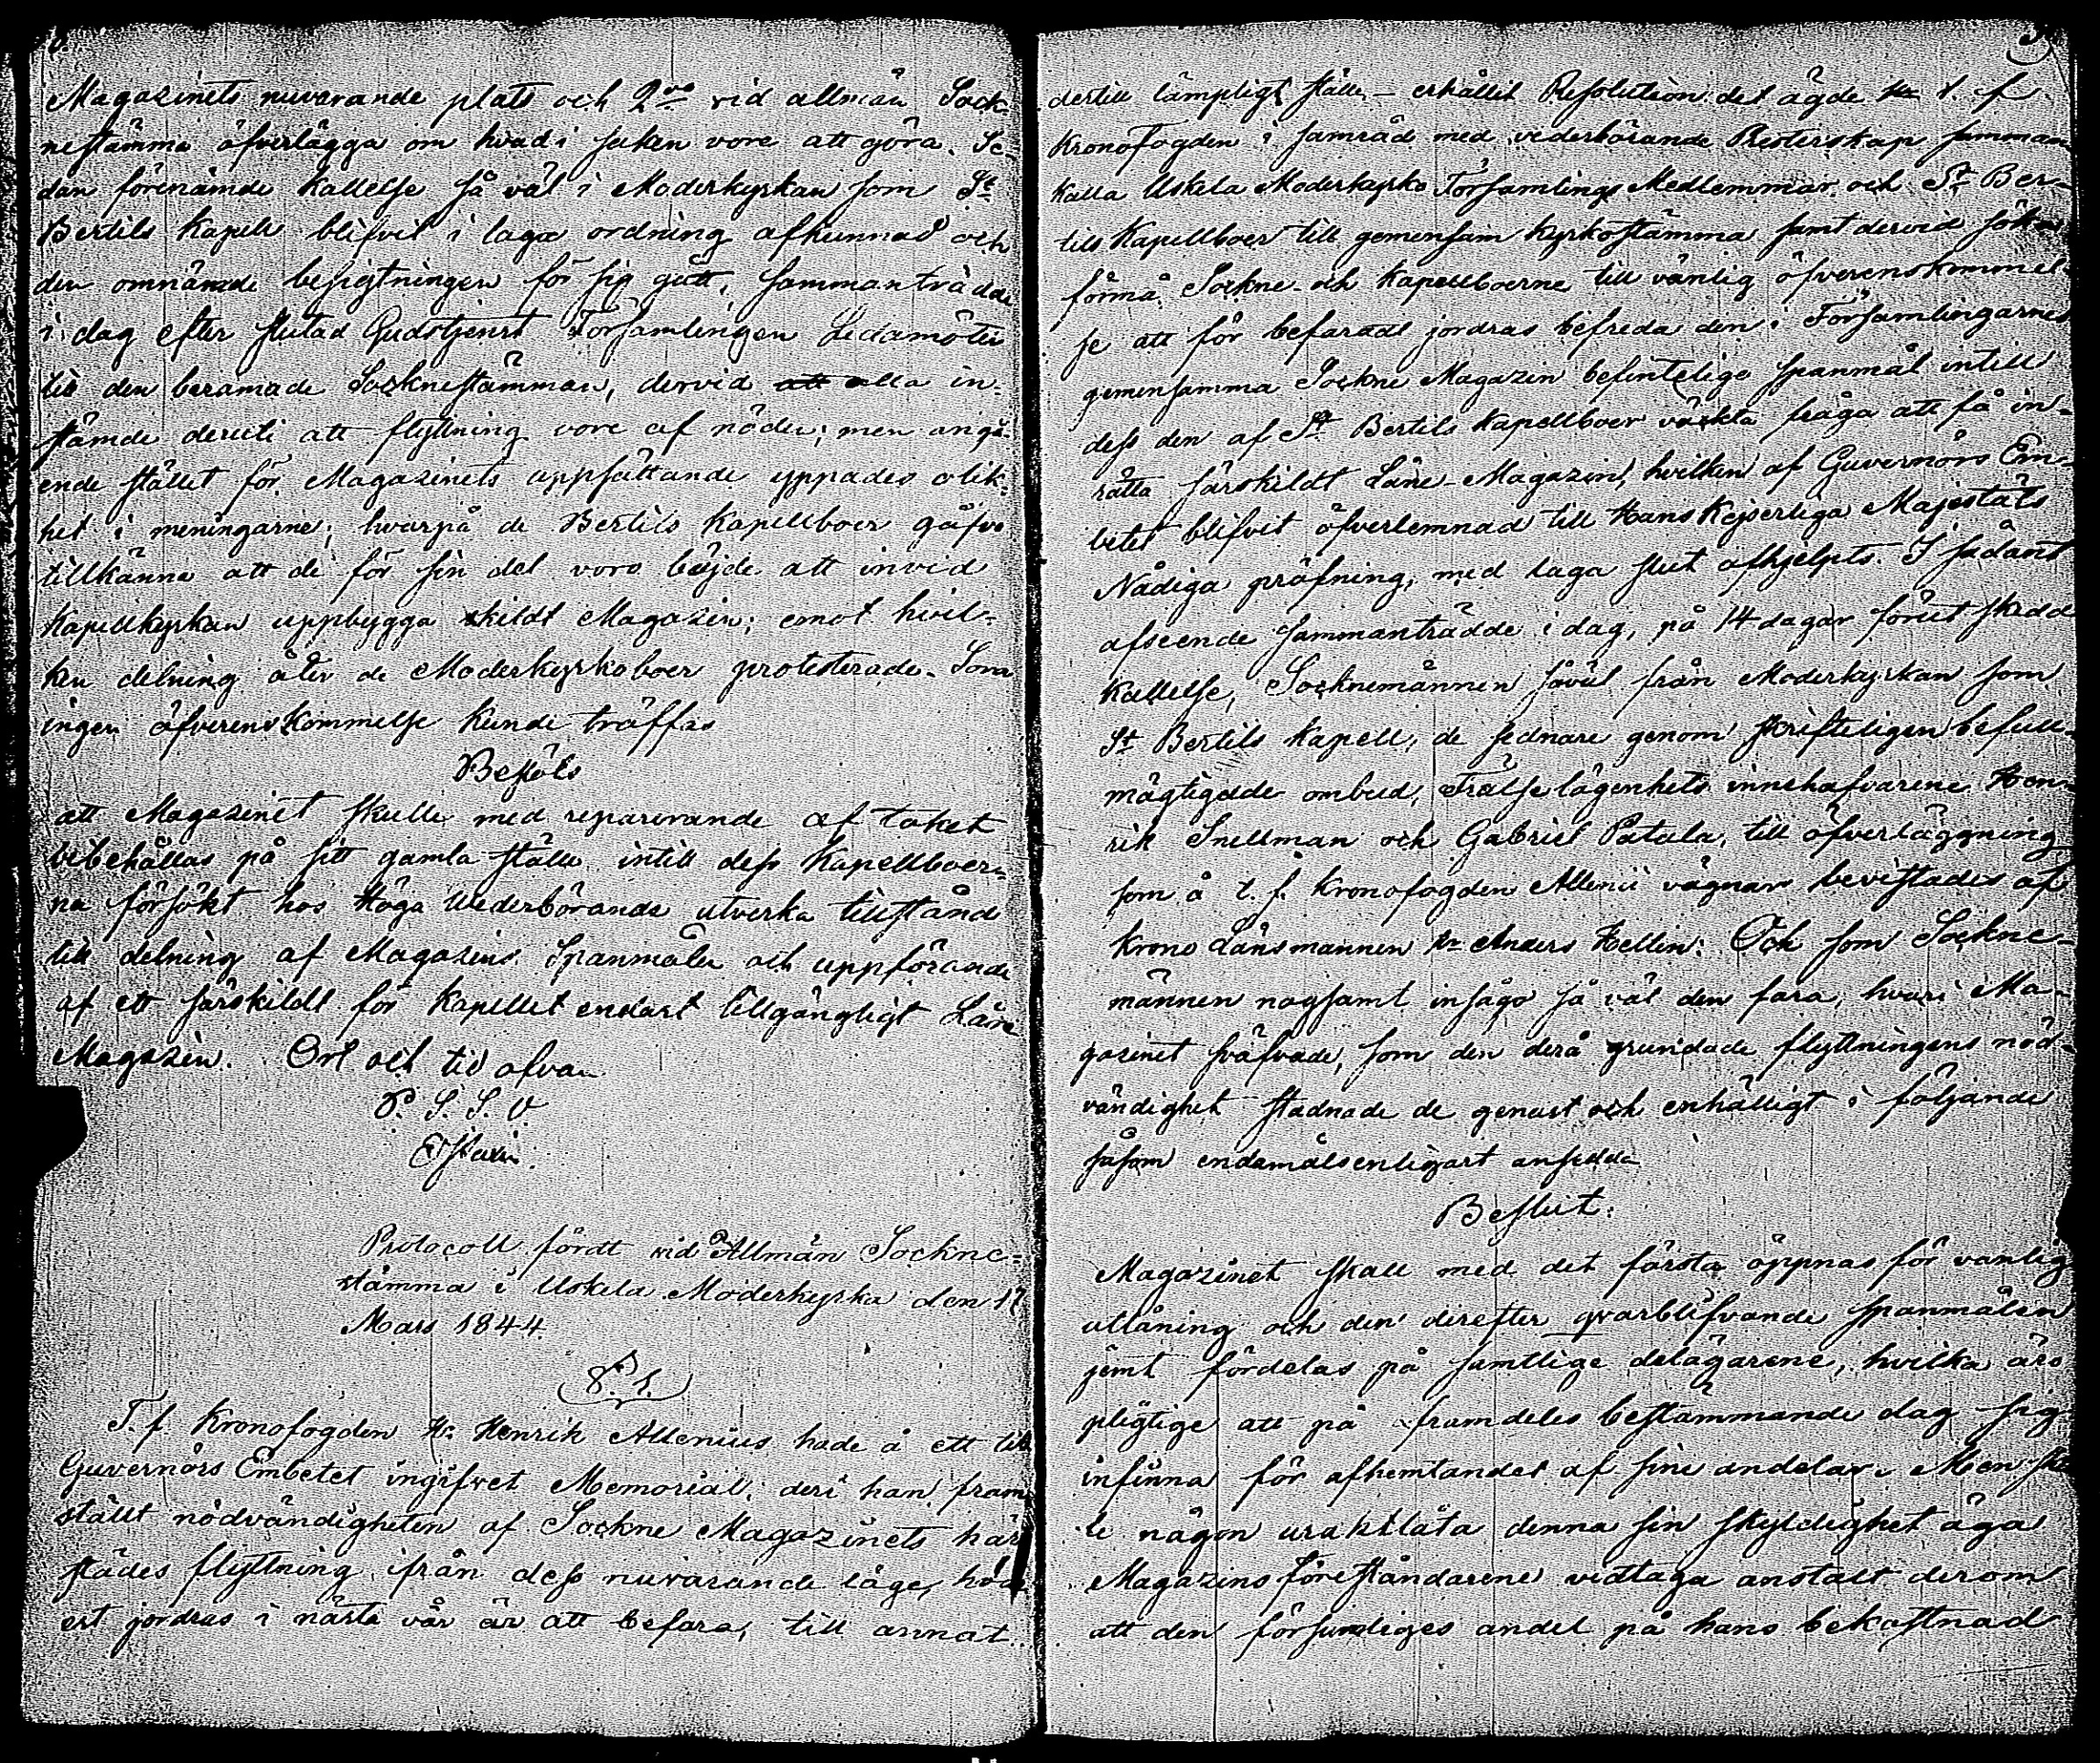 Magazinets nuvarande plats och 2do vid allmän Sock-
nestämma öfverlägga om hvad i saken vore att göra. Se-
dan förenämde kallelse så väl i Moderkyrkan som St
Bertils kapell blifvit i laga ordning afkunnad och
den omnämde besigtningen för sig gått, sammanträdde
i dag efter slutad Gudstjenst Församlingen Ledamöter
till den beramade Socknestämman, dervid alla in-
stämde deruti att flyttning vore af nöden; men angå-
ende stället för Magazinets uppsättande yppades olik-
het i meningarne; hvarpå de Bertils Kapellboer gåfvo
tillkänna att de för sin del voro böjde att invid
Kapellkyrkan uppbygga skildt Magazin; emot hvil-
ken delning åter de Moderkyrkoboer protesterade. Som
ingen öfverenskommelse kunde träffas
Beslöts
att Magazinet skulle med reparerande af taket
bibehållas på sitt gamla ställe intill dess Kapellboer-
na försökt hos Höga Wederbörande utverka tillstånd
till delning af Magazins Spanmålen och uppförande
af ett särskildt för Kapellet endast tillgängligt Låne
Magazin. Ort och tid ofvan
P. S. S. V

Protocoll fördt vid Allmän Sockne-
stämma i Uskela Moderkyrka den 17
Mars 1844.
§. 1.
T. f. Kronofogden Hr. Henrik Allenius hade å ett till
Guvernörs Embetet ingifvet Memorial, deri han fram-
ställt nödvändigheten af Sockne Magazinets här-
städes flyttning ifrån dess nuvarande läge,
est jordras i nästa vår är att befara, till annat
dertill lämpligt ställe – erhållit Resolution det ägde t. f.
Kronofogden i samråd med vederbörande Presterskap samman
kalla Uskela Moderkyrko Församlings Medlemmar och St Ber-
tils Kapellboer till gemensam kyrkostämma samt dervid söka
förmå Sockne- och Kapellboerne till vänlig öfverenskommel-
se att för befarade jordras befreda den i Församlingarnes
gemensamma Sockne Magazin befintelige spanmål intill
dess den af St Bertils Kapellboer väckta fråga att få in-
rätta särskildt Låne-Magazin, hvilken af Guvernörs Em-
betet blifvit öfverlemnad till Hans Kejserliga Majestäts
Nådiga pröfning, med laga slut afhjelpts. I sådant
afseende sammanträdde i dag, på 14 dagar förut skedd
kallelse, Socknemännen såväl från Moderkyrkan som
St Bertils Kapell, de sednare genom skrifteligen befull-
mägtigade ombud, Frälselägenhets innehafvarene Hen-
rik Snellman och Gabriel Patala, till öfverläggning
som å t. f. Kronofogden Allenii vägnar bevistades af
Krono Länsmannen Hr Anders Hellin. Och som Sockne-
männen nogsamt insågo så väl den fara, hvari Ma-
gazinet sväfvade, som den derå grundade flyttningens nöd-
vändighet stadnade de genast och enhälligt i följande
såsom endamålsenligast ansedda
Beslut.
Magazinet skall med det första öppnas för vanlig
utlåning och den derefter qvarblifvande spanmålen
jemt fördelas på samtlige delägarene, hvilka äro
pligtige att på framdeles bestämmande dag sig
infinna för afhemtandet af sine andelar. Men skul-
le någon uraktlåta denna sin skyldighet äga
Magazins föreståndarene vidtaga anstalt derom
att den försumliges andel på hans bekostnad